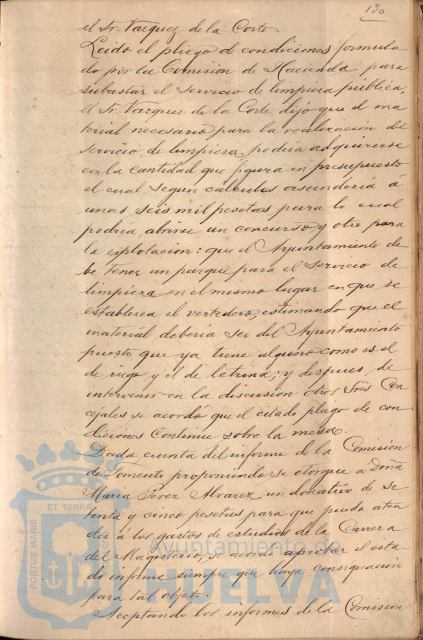 120
el Sr. Vazquez de la Corte.
Leido el pliego de condiciones formula
do por la Comision de Hacienda para
subastar el servicio de limpieza pública,
el Sr. Vazquez de la Corte dijo que el ma
terial necesario para la realizacion del
servicio de limpieza, podria adquirirse
con la cantidad que figura en presupuesto
el cual segun cálculos ascenderia á
unas seis mil pesetas para lo cual
podria abrirse un concurso y otro para
la esplotacion: que el Ayuntamiento de
be tener un parque para el servicio de
limpieza en el mismo lugar en que se
establezca el vertedero, estimando que el
material deberia ser del Ayuntamiento
puesto que ya tiene alguno como es el
de riego y el de letrina; y despues de
intervenir en la discusion otros Sres Con
cejales se acordó que el citado pliego de con
diciones continue sobre la mesa.
Dada cuenta del informe de la Comision
de Fomento proponiendo se otorgue a Doña
Maria Perez Alvarez un donativo de se
tenta y cinco pesetas para que pueda aten
der á los gastos de estudios de la Carrera
del Magisterio, se acordó aprobar el cita
do informe siempre que haya consignacion
para tal objeto.
Aceptando los informes de la Comision
PORTUS MARIS
ET TERRAE
Ayuntamiento de
HUELVA